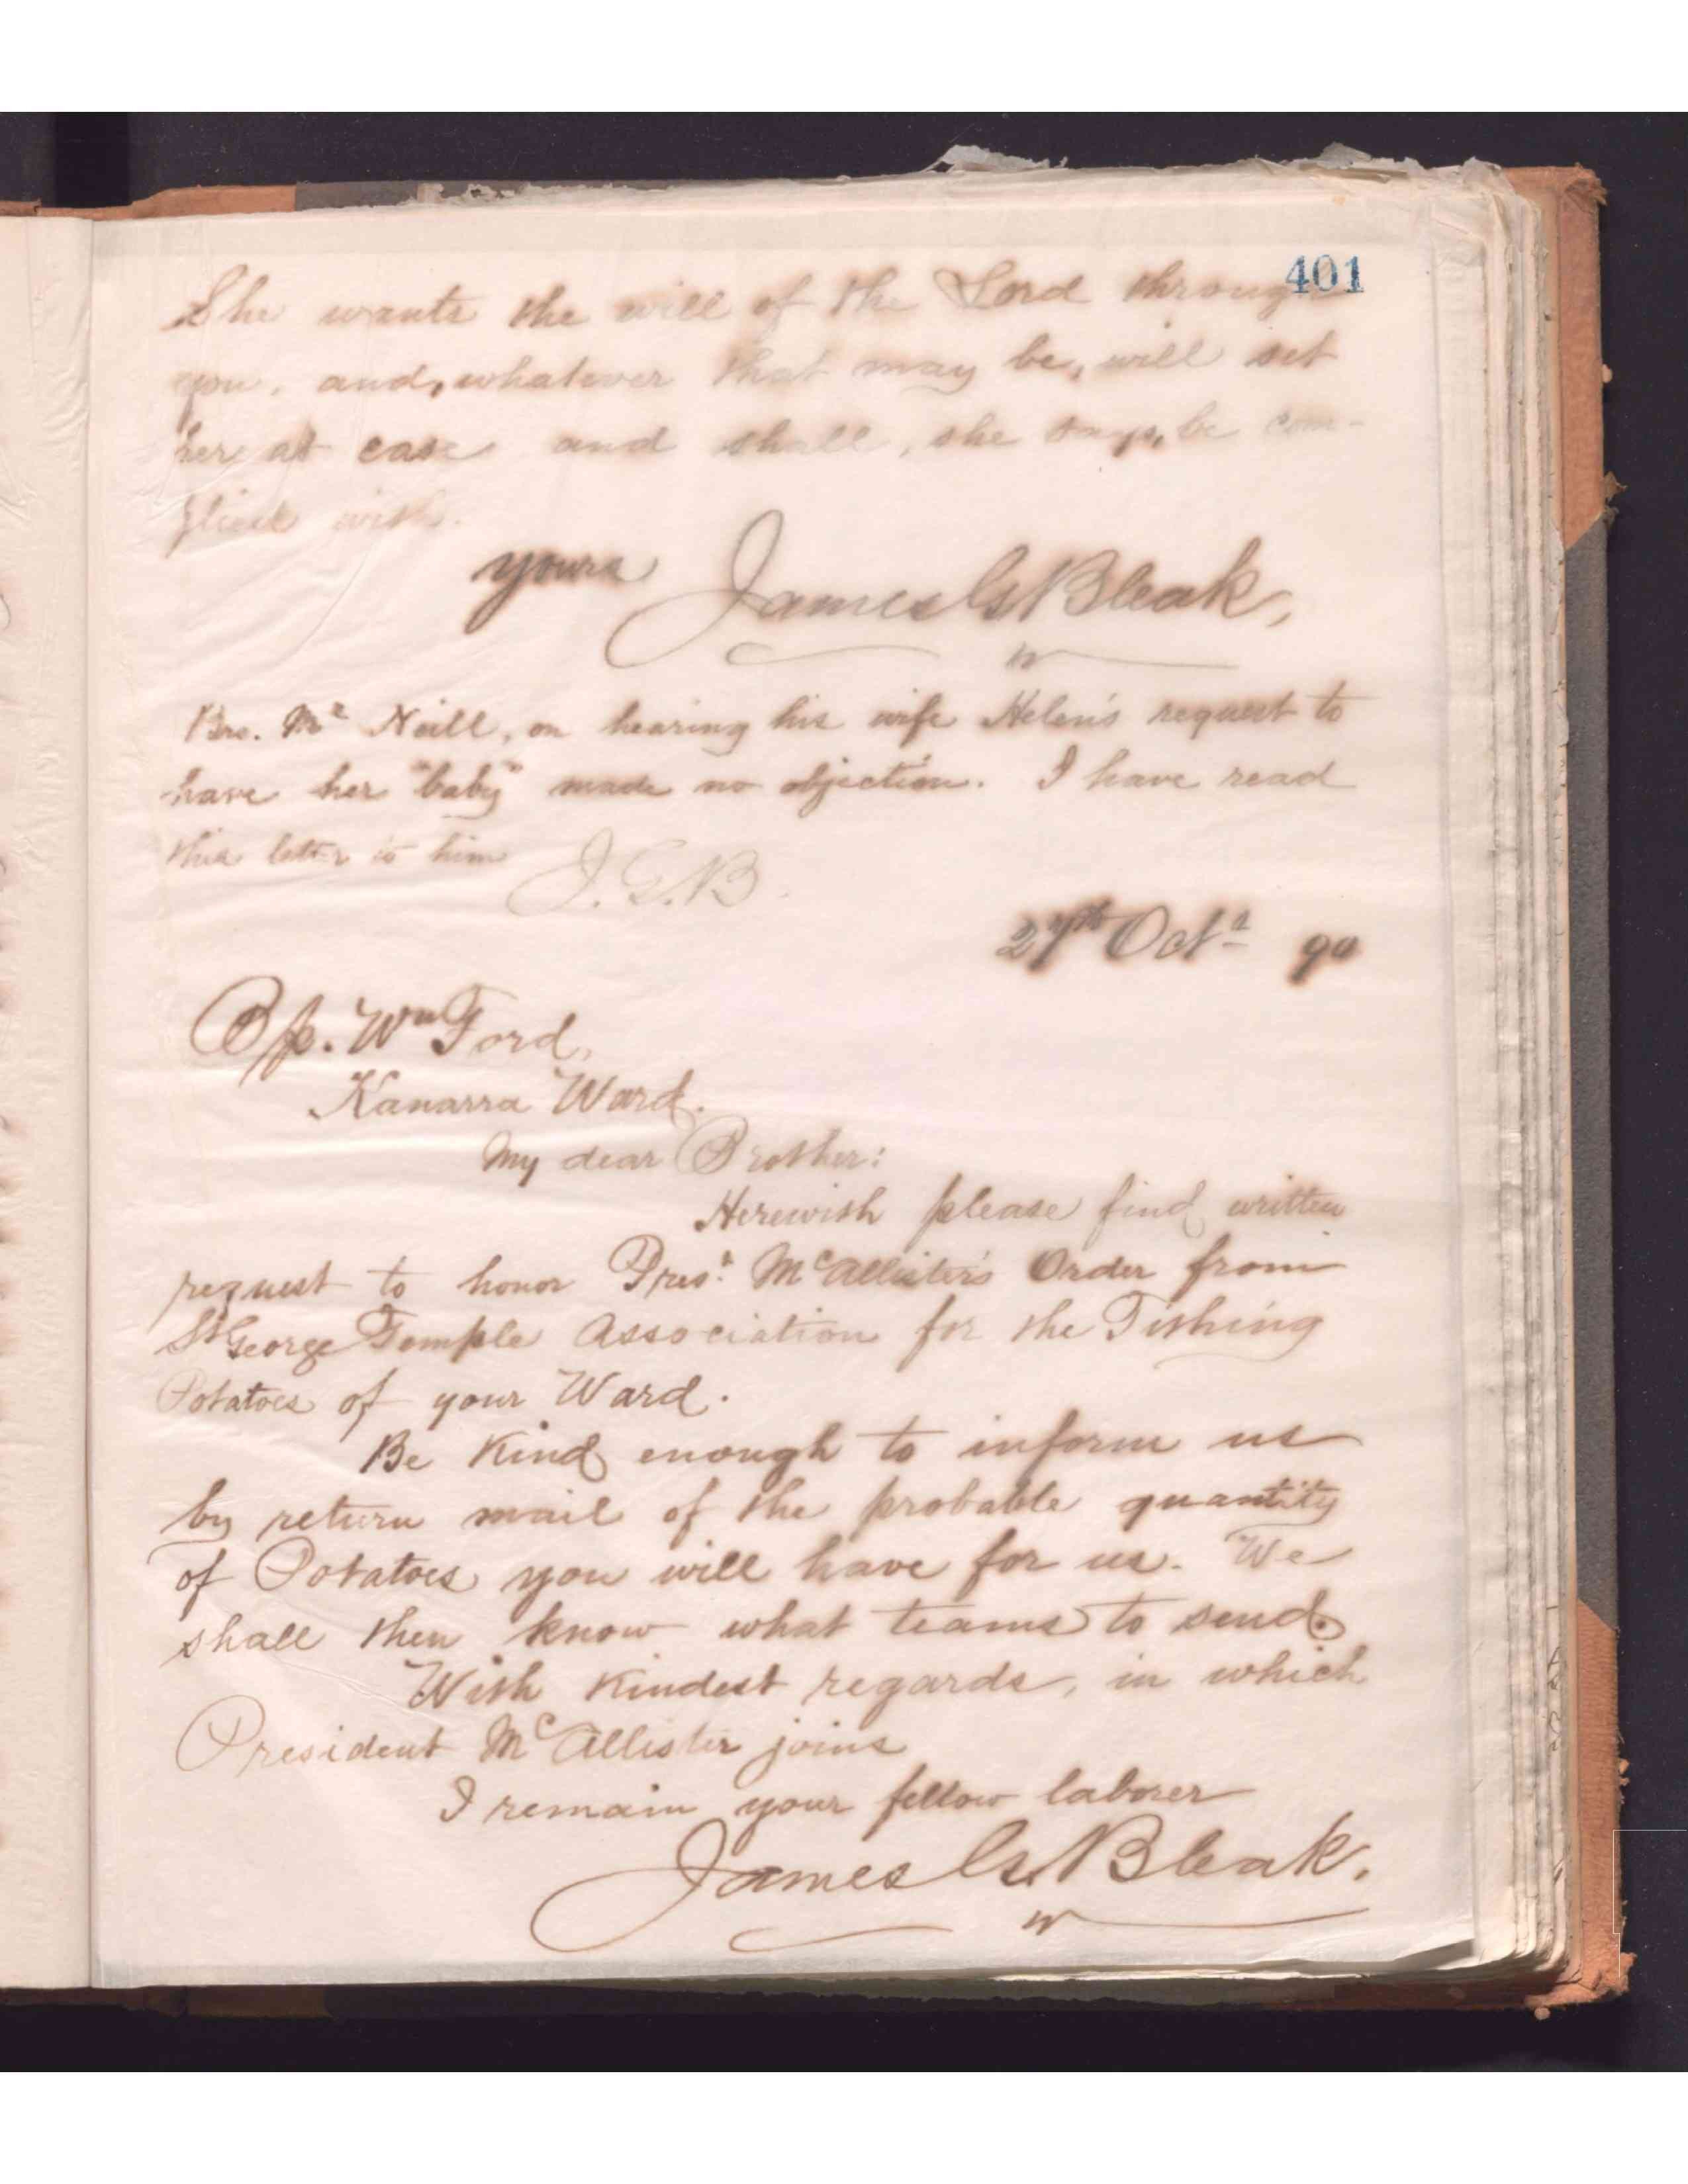 401
She wants the will of the Lord through
you, and, whatever that may be, will set
her at ease and shall, she says, be com-
plied with.
yours James G Bleak,
Bro. Mc Neill, on hearing his wife Helen's request to
have her "baby" made no objection. I have read
this letter to him J.G.B.
27th Octr 90
Bp. Wm Ford,
Kanarra Ward.
My dear Brother:
Herewith please find written
request to honor Prest McAllister's Order from
St George Temple Association for the Tithing
Potatoes of your Ward.
Be Kind enough to inform us
by return mail of the probable quantity
of Potatoes you will have for us. We
shall then know what teams to send.
With Kindest regards, in which
President McAllister joins
I remain your fellow laborer
James G. Bleak.